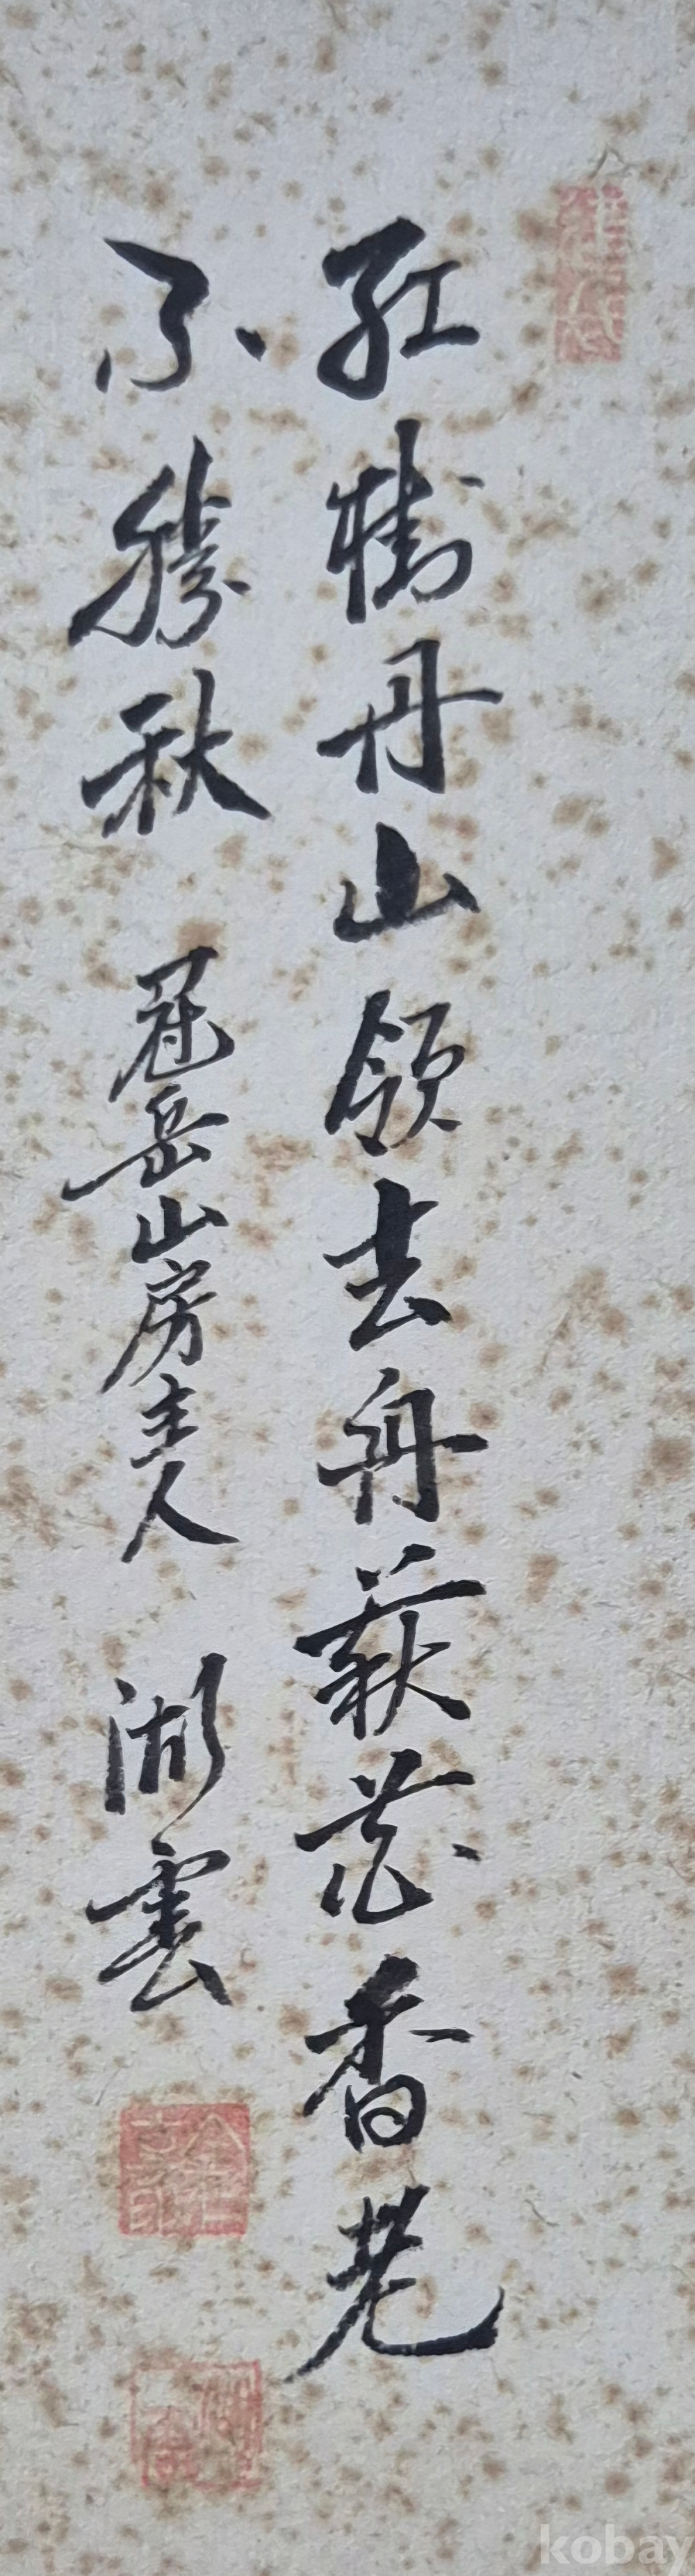 紅樹丹山領去舟荻花香老
不勝秋 冠岳山房主人 湖雲
kobay